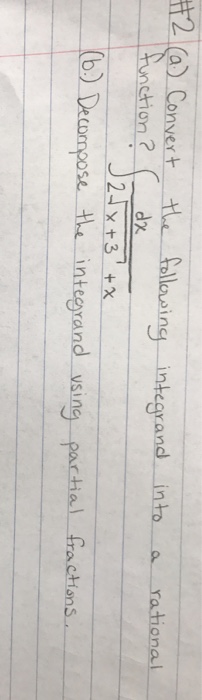 #2 (a.) Convert the following integrand into a rational
function? ∫ dx / (2√(x+3) + x)
(b.) Decompose the integrand using partial fractions.